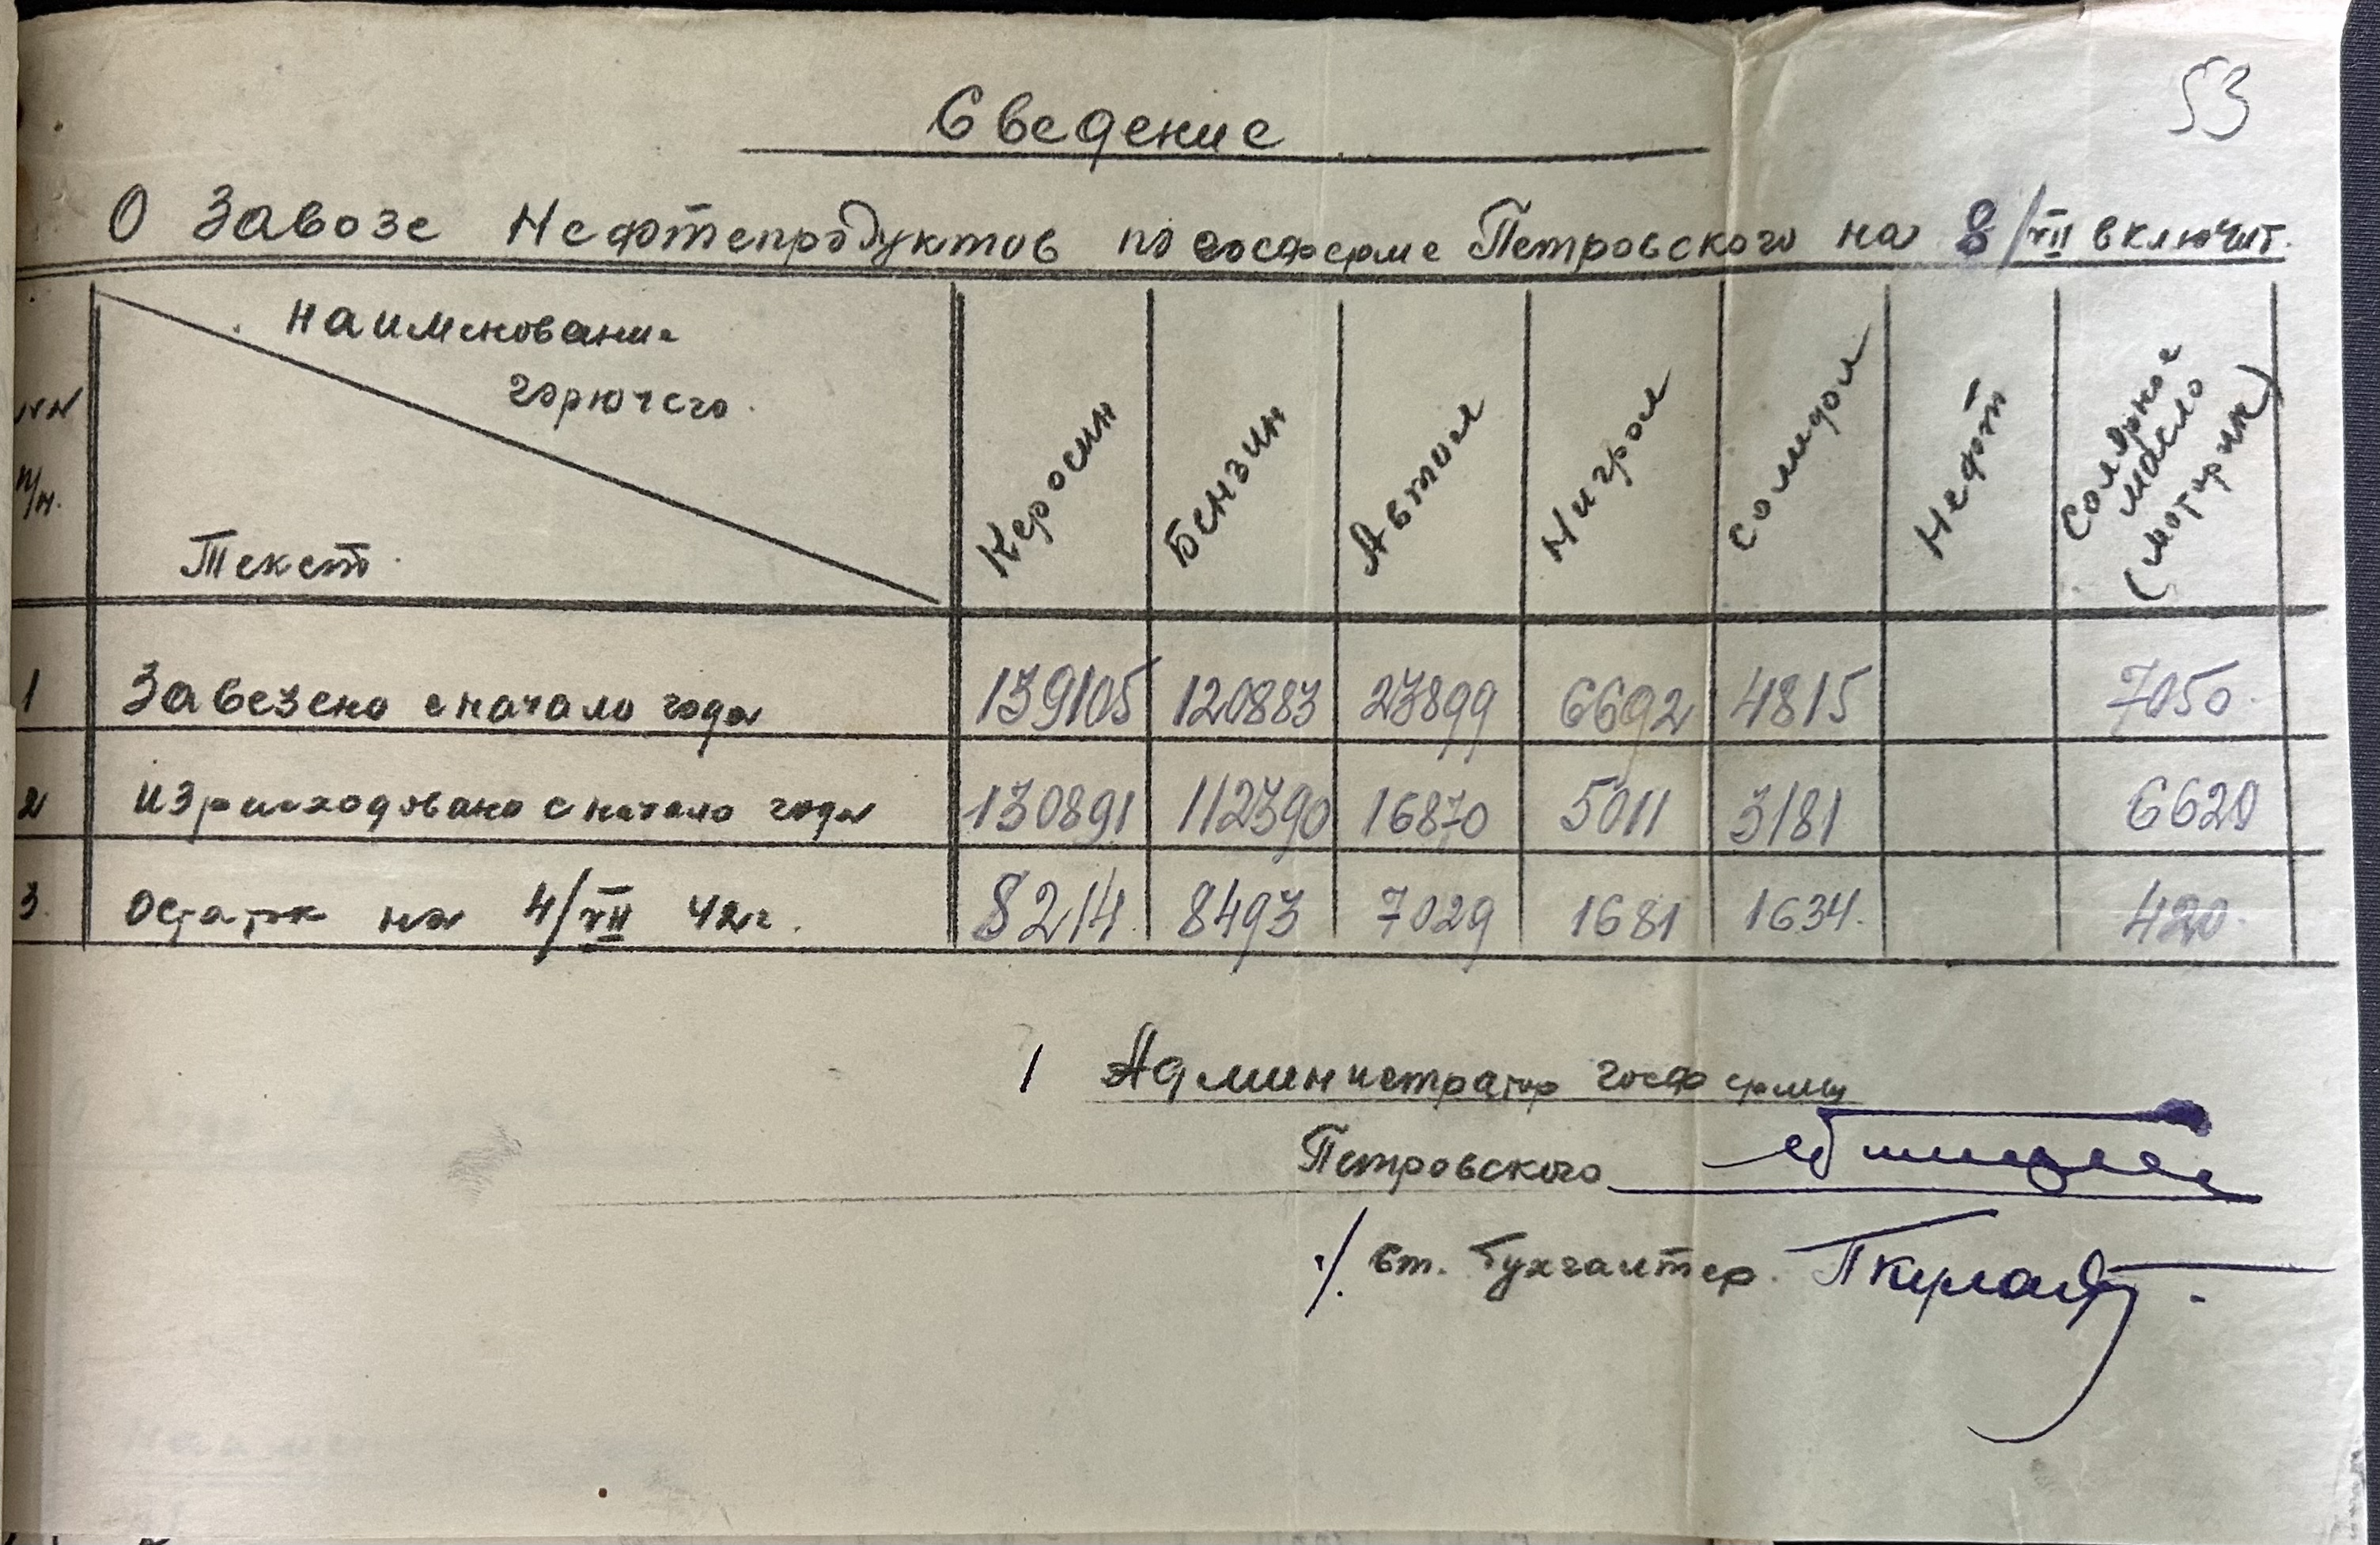 53
Сведение
О Завозе Нефтепродуктов по госферме Петровского на 8/VII включит.
NN п/н. Наименование горючего. Текст. Керосин Бензин Автол Нигрол Солидол Нефт Солярное масло (моторин)
1 Завезено с начало года 139105 120883 23899 6692 4815 7050.
2 Израсходовано с начало года 130891 112390 16870 5011 3181 6620
3. Остаток на 4/VII 42г. 8214. 8493 7029 1681 1634. 420.
Администратор госфермы
Петровского
ст. бухгалтер.